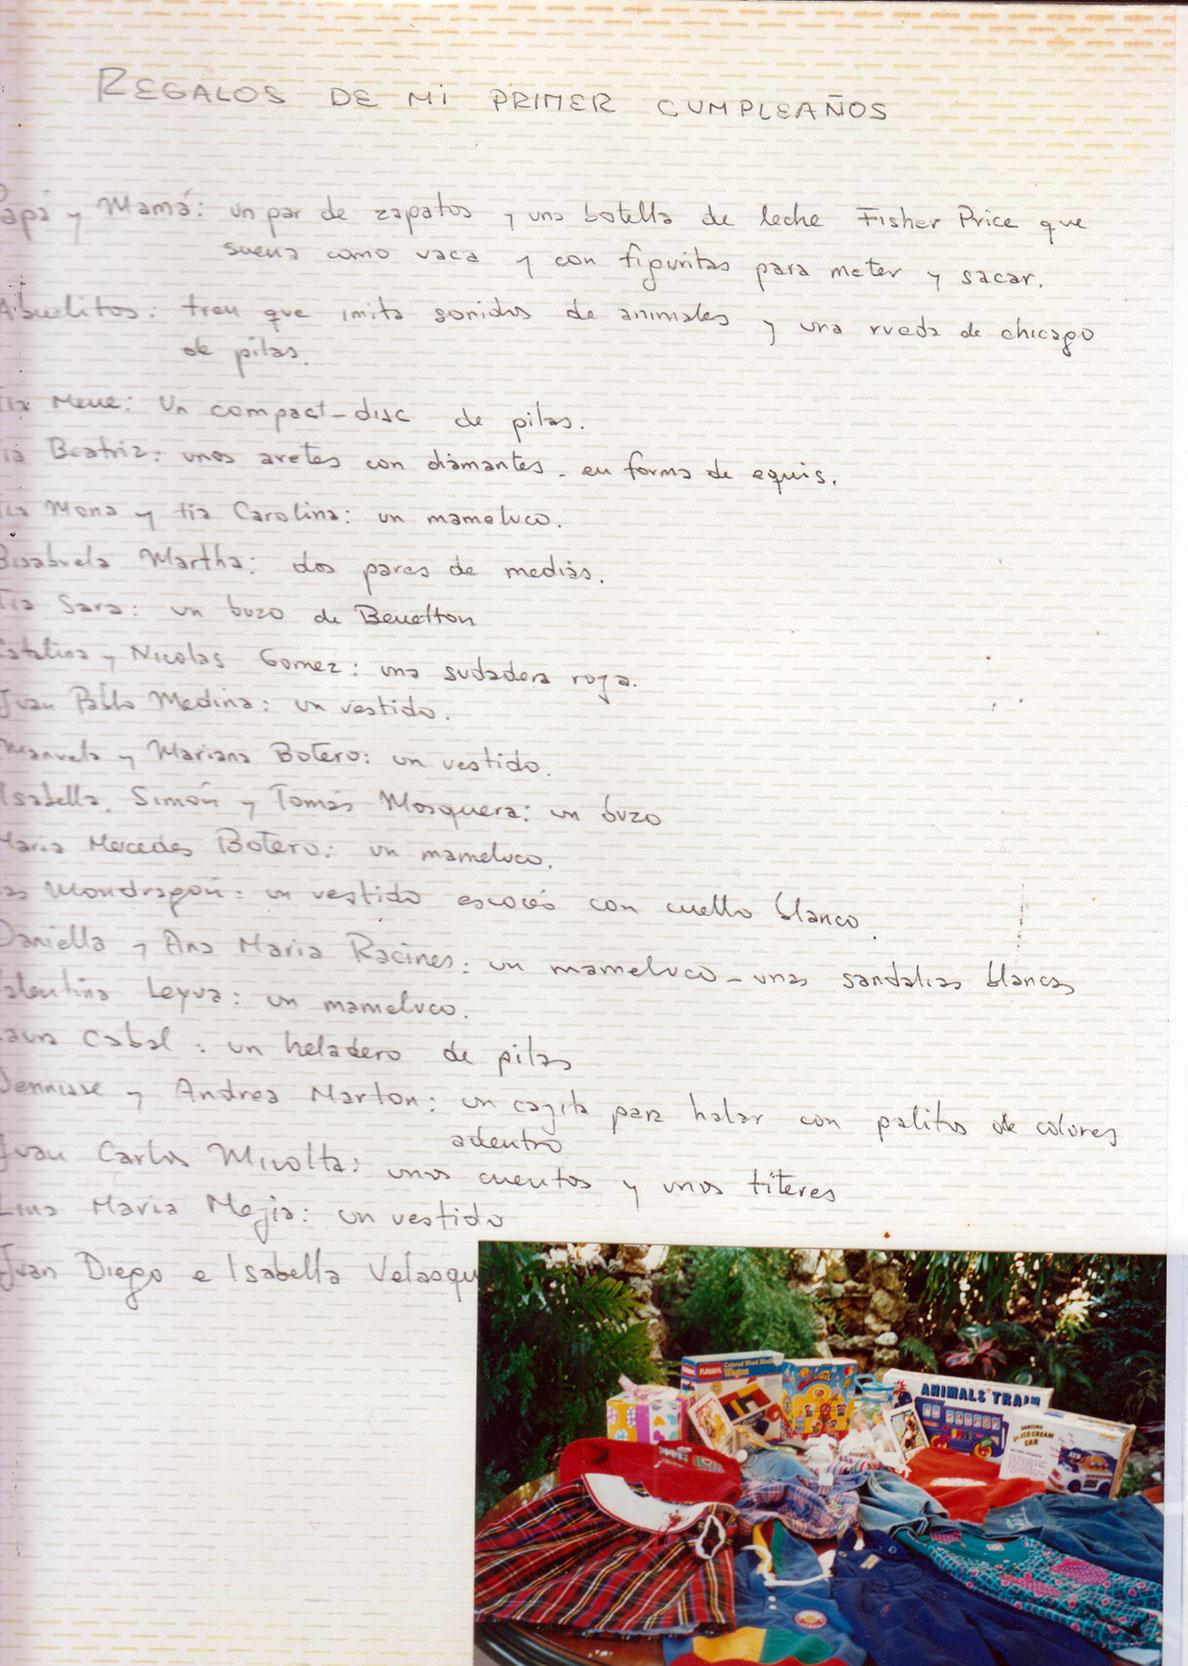 REGALOS DE MI PRIMER CUMPLEAÑOS
Papá y Mamá: un par de zapatos y una botella de leche Fisher Price que
suena como vaca y con figuritas para meter y sacar.
Abuelitos: tren que imita sonidos de animales y una rueda de chicago
de pilas.
Tía Mene: Un compact-disc de pilas.
Tía Beatriz: unos aretes con diamantes - en forma de equis.
Tía Mona y tía Carolina: un mameluco.
Bisabuela Martha: dos pares de medias.
Tía Sara: un buzo de Benetton
Catalina y Nicolas Gomez: una sudadera roja.
Juan Pablo Medina: un vestido.
Manuela y Mariana Botero: un vestido.
Isabella, Simón y Tomás Mosquera: un buzo
Maria Mercedes Botero: un mameluco.
as Mondragón: un vestido escocés con cuello blanco.
Daniella y Ana Maria Racines: un mameluco - unas sandalias blancas
Valentina Leyva: un mameluco.
Laura Cabal: un heladero de pilas
Dennisse y Andrea Marton: un cajita para halar con palitos de colores
adentro
Juan Carlos Micolta: unos cuentos y unos títeres
Lina Maria Mejia: un vestido
Juan Diego e Isabella Velasqu
PLAYSKOOL
Colored Wood Blocks
Wagon
ANIMALS TRAIN
ICE CREAM
CAR